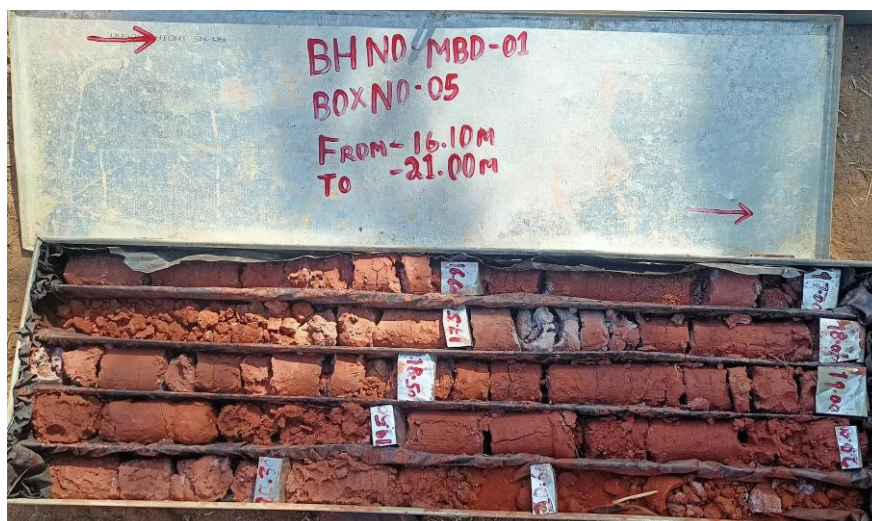 BH NO-MBD-01
BOX NO-05
FROM-16.10M
TO -21.00M
17.51
18.00
18.50
19.00
19.5